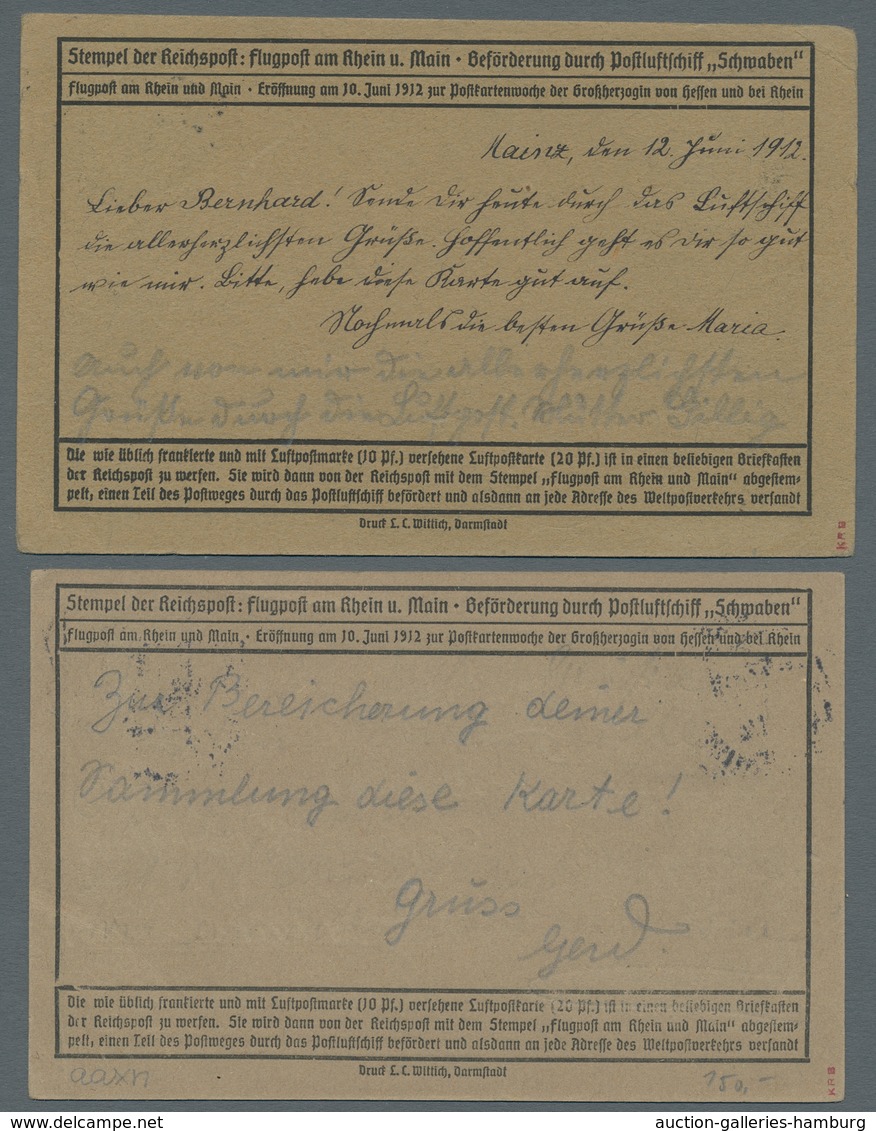 Stempel der Reichspost: Flugpost am Rhein u. Main · Beförderung durch Postluftschiff „Schwaben“
Flugpost am Rhein und Main · Eröffnung am 10. Juni 1912 zur Postkartenwoche der Großherzogin von Hessen und bei Rhein
Mainz, den 12. Juni 1912.
Lieber Bernhard! Sende dir heute durch das Luftschiff
die allerherzlichsten Grüße. Hoffentlich geht es dir so gut
wie mir. Bitte, hebe diese Karte gut auf.
Nochmals die besten Grüße Maria.
Auch von mir die allerherzlichsten
Grüße durch die Luftpost. Mutter Billig
Die wie üblich frankierte und mit Luftpostmarke (10 Pf.) versehene Luftpostkarte (20 Pf.) ist in einen beliebigen Briefkasten
der Reichspost zu werfen. Sie wird dann von der Reichspost mit dem Stempel „Flugpost am Rhein und Main“ abgestem-
pelt, einen Teil des Postweges durch das Postluftschiff befördert und alsdann an jede Adresse des Weltpostverkehrs versandt
Druck L. C. Wittich, Darmstadt
KRB
Stempel der Reichspost: Flugpost am Rhein u. Main · Beförderung durch Postluftschiff „Schwaben“
Flugpost am Rhein und Main · Eröffnung am 10. Juni 1912 zur Postkartenwoche der Großherzogin von Hessen und bei Rhein
Zur Bereicherung deiner
Sammlung diese Karte!
Gruss
Gerd.
Die wie üblich frankierte und mit Luftpostmarke (10 Pf.) versehene Luftpostkarte (20 Pf.) ist in einen beliebigen Briefkasten
der Reichspost zu werfen. Sie wird dann von der Reichspost mit dem Stempel „Flugpost am Rhein und Main“ abgestem-
pelt, einen Teil des Postweges durch das Postluftschiff befördert und alsdann an jede Adresse des Weltpostverkehrs versandt
Druck L. C. Wittich, Darmstadt
aaxn
150,-
KRB
auction-galleries-hamburg